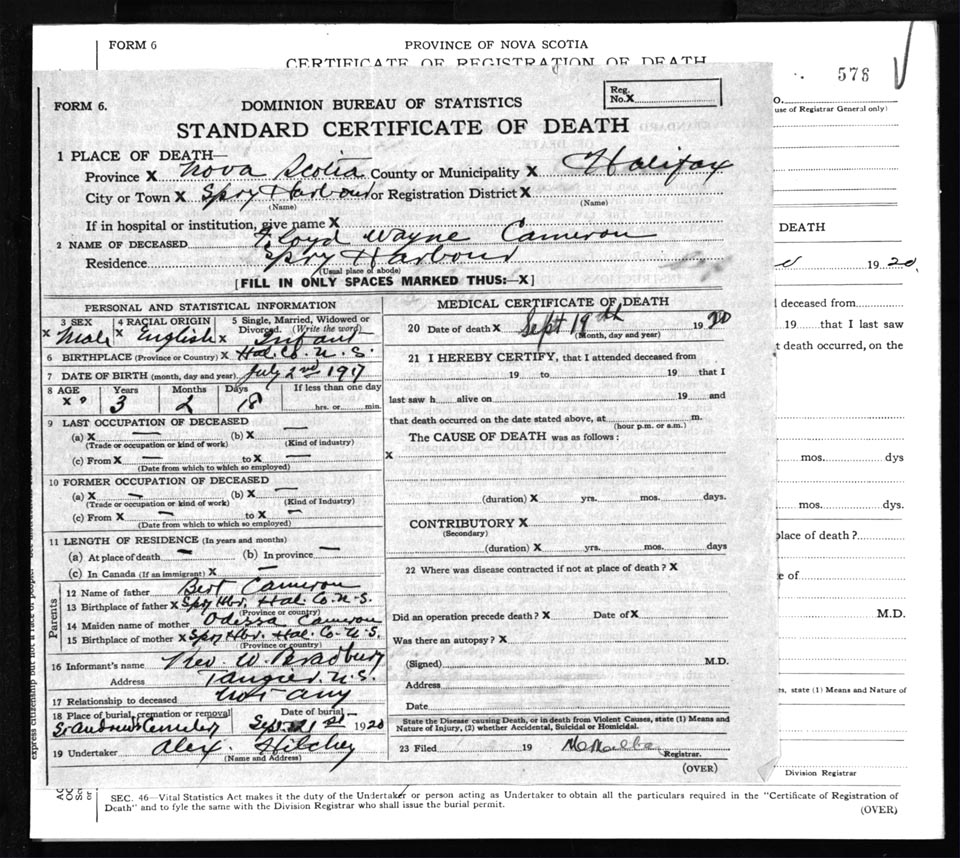 FORM 6
PROVINCE OF NOVA SCOTIA
CERTIFICATE OF REGISTRATION OF DEATH
576
FORM 6.
DOMINION BUREAU OF STATISTICS
Reg. No. X
STANDARD CERTIFICATE OF DEATH
1 PLACE OF DEATH—
Province X Nova Scotia County or Municipality X Halifax
City or Town X Spry Harbour or Registration District X
(Name) (Name)
If in hospital or institution, give name X
2 NAME OF DECEASED Floyd Wayne Cameron
Residence Spry Harbour
(Usual place of abode)
[FILL IN ONLY SPACES MARKED THUS:—X]
PERSONAL AND STATISTICAL INFORMATION
3 SEX 4 RACIAL ORIGIN 5 Single, Married, Widowed or Divorced. (Write the word)
X Male X English X Infant
6 BIRTHPLACE (Province or Country) X Hal. Co. N.S.
7 DATE OF BIRTH (month, day and year) July 2nd 1917
8 AGE Years Months Days If less than one day
X 3 2 18 hrs. or min.
9 LAST OCCUPATION OF DECEASED
(a) X — (b) X —
(Trade or occupation or kind of work) (Kind of industry)
(c) From X — to X —
(Date from which to which so employed)
10 FORMER OCCUPATION OF DECEASED
(a) X — (b) X —
(Trade or occupation or kind of work) (Kind of Industry)
(c) From X — to X —
(Date from which to which so employed)
11 LENGTH OF RESIDENCE (In years and months)
(a) At place of death — (b) In province —
(c) In Canada (If an immigrant) X —
Parents
12 Name of father Bert Cameron
13 Birthplace of father X Spry Hbr. Hal. Co. N.S.
(Province or country)
14 Maiden name of mother Odessa Cameron
15 Birthplace of mother X Spry Hbr. Hal. Co. N.S.
(Province or country)
16 Informant's name W. Bradbury
Address Tangier N.S.
17 Relationship to deceased Not any
18 Place of burial, cremation or removal Date of burial
St Andrews Cemetery Sept. 21st 1920
19 Undertaker Alex. Hilchey
(Name and Address)
MEDICAL CERTIFICATE OF DEATH
20 Date of death X Sept 19th 1920
(Month, day and year)
21 I HEREBY CERTIFY, that I attended deceased from
19 to 19 that I
last saw h alive on 19 and
that death occurred on the date stated above, at m.
(hour p.m. or a.m.)
The CAUSE OF DEATH was as follows:
X
(duration) X yrs. mos. days.
CONTRIBUTORY X
(Secondary)
(duration) X yrs. mos. days
22 Where was disease contracted if not at place of death? X
Did an operation precede death? X Date of X
Was there an autopsy? X
(Signed) M.D.
Address
Date
State the Disease causing Death, or in death from Violent Causes, state (1) Means and
Nature of Injury, (2) whether Accidental, Suicidal or Homicidal.
23 Filed 19
Registrar.
(OVER)
O.
use of Registrar General only)
DEATH
1920.
deceased from
19 that I last saw
t death occurred, on the
mos. dys
mos. dys.
place of death?
e of
M.D.
s, state (1) Means and Nature of
Division Registrar
SEC. 46—Vital Statistics Act makes it the duty of the Undertaker or person acting as Undertaker to obtain all the particulars required in the "Certificate of Registration of
Death" and to fyle the same with the Division Registrar who shall issue the burial permit.
(OVER)